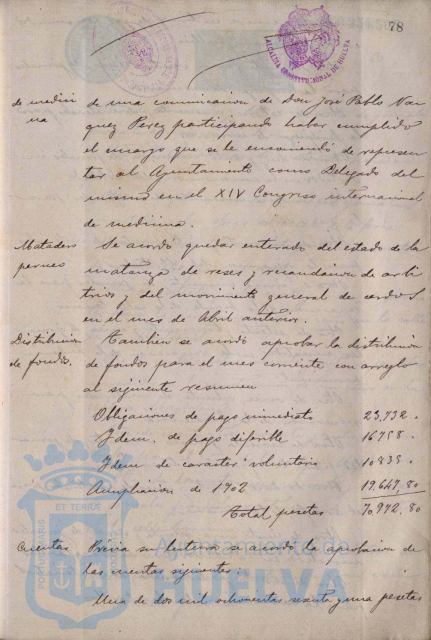 78
ALCALDIA CONSTITUCIONAL DE HUELVA
de medici
na
de una comunicacion de Don José Pablo Vaz
quez Perez participando haber cumplido
el encargo que se le encomendó de represen
tar al Ayuntamiento como Delegado del
mismo en el XIV Congreso internacional
de medicina.
Matadero
Se acordó quedar enterado del estado de la
matanza de reses y recaudacion de arbi
trios y del movimiento general de cerdos
en el mes de Abril anterior.
Distribucion
de fondos.
Tambien se acordó aprobar la distribucion
de fondos para el mes corriente con arreglo
al siguiente resumen
Obligaciones de pago inmediato 23,732.
Idem. de pago diferible 16758.
Idem de caracter voluntario 10835.
Ampliacion de 1902 19.647,80
Total pesetas 70,972.80
Cuentas
Prévia su lectura se acordó la aprobacion de
las cuentas siguientes:
Una de dos mil ochocientas sesenta y una pesetas
PORTUS MARIS ET TERRÆ
Ayuntamiento de
HUELVA